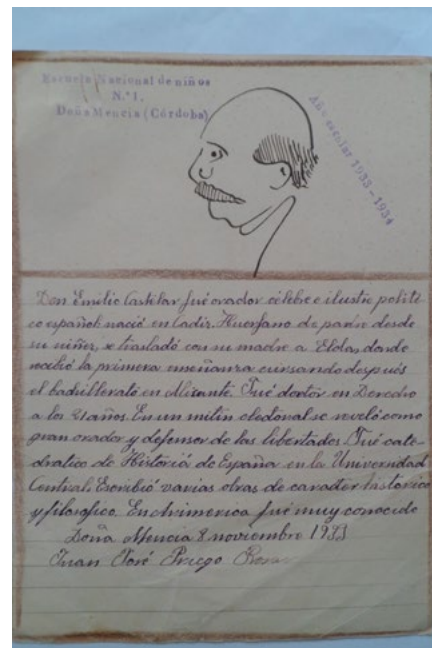 Escuela Nacional de niños
N.º 1.
Doña Mencia (Córdoba)
Año escolar 1933-1934
Don Emilio Castelar fué orador célebre e ilustre políti-
co español: nació en Cadiz. Huerfano de padre desde
su niñez, se trasladó con su madre a Eldas, donde
recibió la primera enseñanza cursando después
el bachillerato en Alicante. Fué doctor en Derecho
a los 21 años. En un mitin electoral se reveló como
gran orador y defensor de las libertades. Fué cate-
dratico de Historia de España en la Universidad
Central. Escribió varias obras de caracter historico
y filosofico. En America fué muy conocido
Doña Mencia 8 noviembre 1933
Juan José Priego